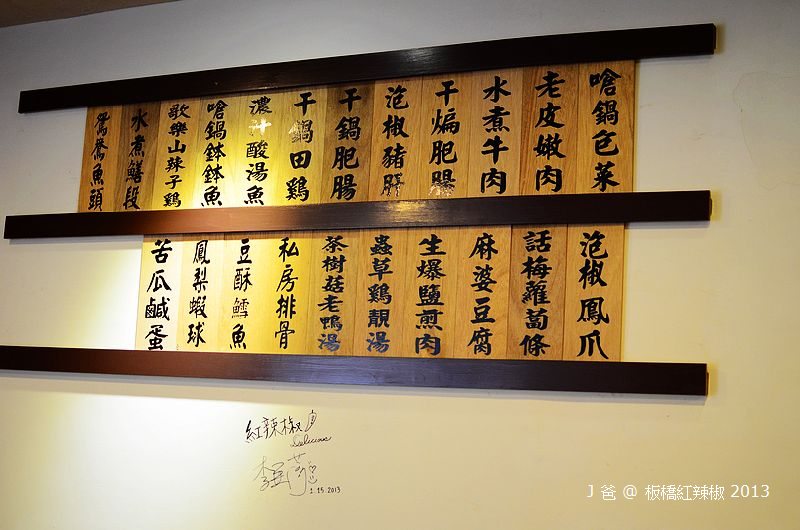 嗆鍋包菜
老皮嫩肉
水煮牛肉
干煸肥腸
泡椒豬肝
干鍋肥腸
干鍋田鷄
濃汁酸湯魚
嗆鍋鉢鉢魚
歌樂山辣子鷄
水煮鱔段
鴛鴦魚頭
泡椒鳳爪
話梅蘿蔔條
麻婆豆腐
生爆鹽煎肉
蟲草鷄靚湯
茶樹菇老鴨湯
私房排骨
豆酥鱈魚
鳳梨蝦球
苦瓜鹹蛋
紅辣椒
Delicious
1.15.2013
J 爸 @ 板橋紅辣椒 2013